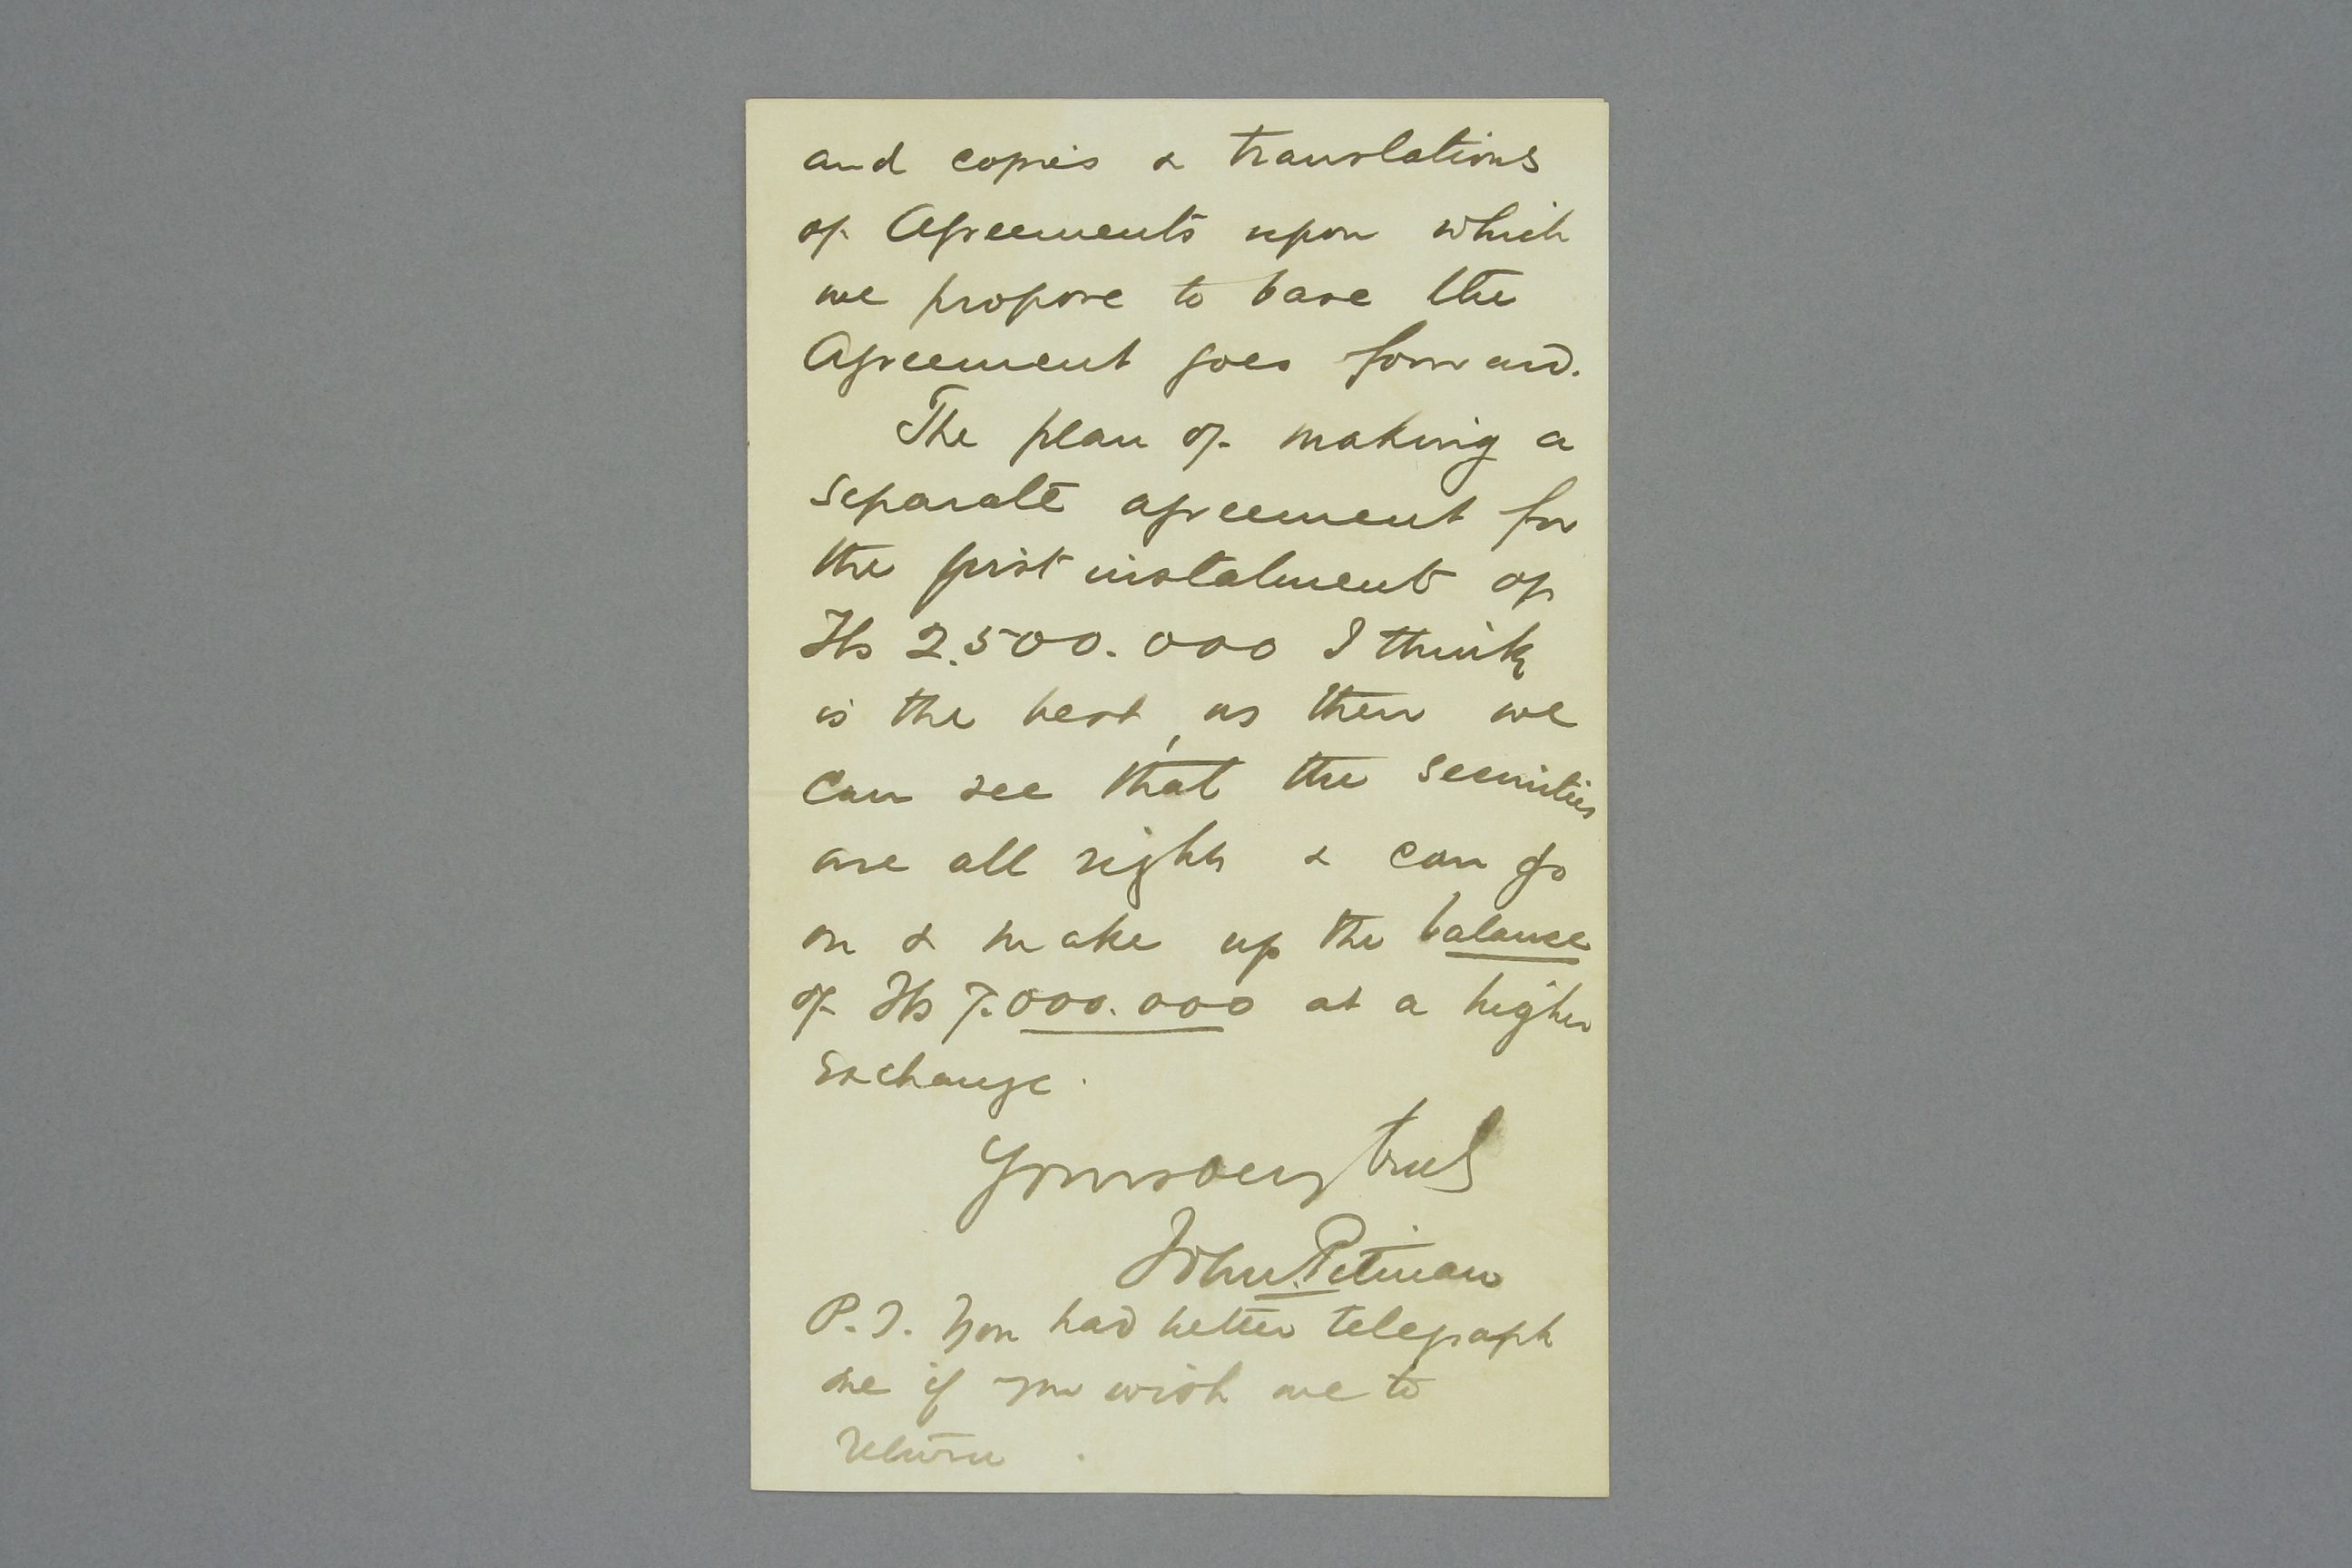 and copies & translations
of Agreements upon which
we propose to base the
Agreement goes forward.
The plan of making a
separate agreement for
the first instalment of
Tls 2.500.000 I think
is the best, as then we
can see that the securities
are all right & can go
on & make up the balance
of Tls 7.000.000 at a higher
Exchange.
Yours very truly
John Pitman
P.S. You had better telegraph
me if you wish me to
return.